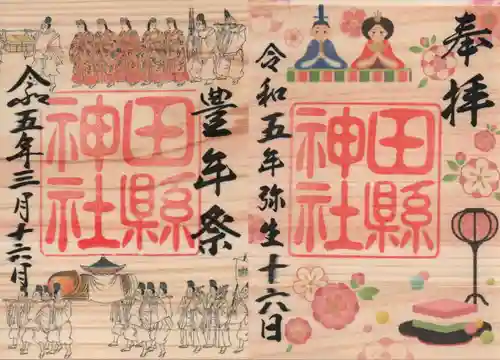 奉拝
田縣
神社
令和五年弥生十六日
豊年祭
田縣
神社
令和五年三月十六日